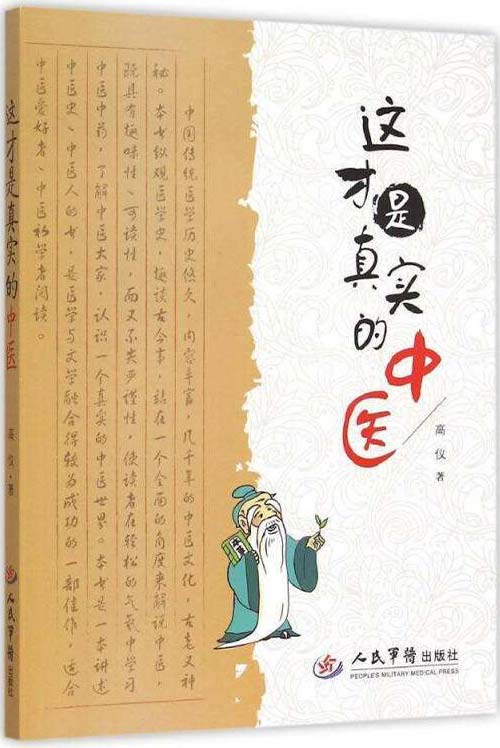 这才是真实的中医
高仪 著
中国传统医学历史悠久，内容丰富，几千年的中医文化，古老又神
秘。本书纵观医学史，畅谈古今事，站在一个全面的角度来解说中医，
既具有趣味性、可读性，而又不失严谨性，使读者在轻松的气氛中学习
中医中药，了解中医大家，认识一个真实的中医世界。本书是一本讲述
中医史、中医人的书，是医学与文学融合得较为成功的一部佳作，适合
中医爱好者、中医初学者阅读。
人民军医出版社
PEOPLE'S MILITARY MEDICAL PRESS
这才是真实的中医
高仪·著
人民军医出版社